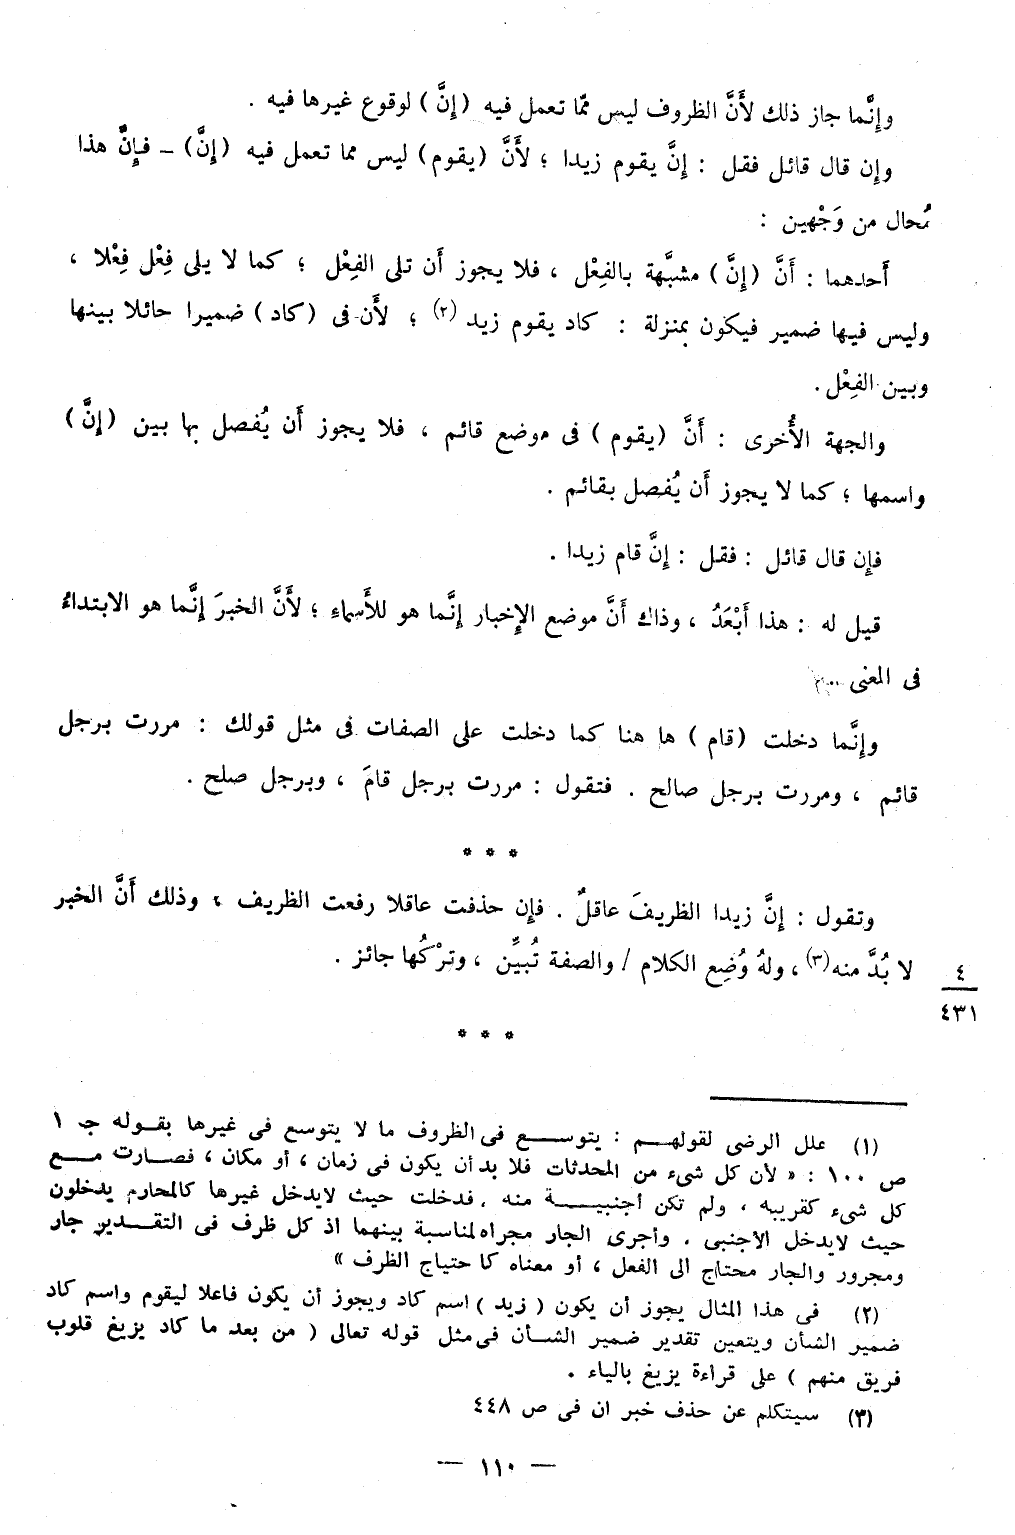 وإنَّما جاز ذلك لأَنَّ الظروف ليس ممّا تعمل فيه (إنَّ) لوقوع غيرها فيه .
وإن قال قائل فقل : إنَّ يقوم زيدا ؛ لأَنَّ (يقوم) ليس مما تعمل فيه (إنَّ) ــ فإنَّ هذا
مُحال من وَجْهين :
أحدهما : أَنَّ (إنَّ) مشبَّهة بالفِعْل ، فلا يجوز أَن تلى الفِعْل ؛ كما لا يلى فِعْل فِعْلا ،
وليس فيها ضمير فيكون بمنزلة : كاد يقوم زيد (٢) ؛ لأَن فى (كاد) ضميرا حائلا بينها
وبين الفِعْل .
والجهة الأُخرى : أَنَّ (يقوم) فى موضع قائم ، فلا يجوز أَن يُفصل بها بين (إنَّ)
واسمها ؛ كما لا يجوز أَن يُفصل بقائم .
فإن قال قائل : فقل : إنَّ قام زيدا .
قيل له : هذا أَبْعَدُ ، وذاك أَنَّ موضع الإخبار إنَّما هو للأَسماءِ ؛ لأَنَّ الخبرَ إنَّما هو الابتداءُ
فى المعنى ..
وإنَّما دخلت (قام) ها هنا كما دخلت على الصفات فى مثل قولك : مررت برجل
قائم ، ومررت برجل صالح . فتقول : مررت برجل قامَ ، وبرجل صلح .
* * *
وتقول : إنَّ زيدا الظريفَ عاقلٌ . فإن حذفت عاقلا رفعت الظريف ، وذلك أَنَّ الخبر
لا بُدَّ منه (٣) ، ولهُ وُضِع الكلام / والصفة تُبيِّن ، وتَرْكُها جائز .
٤
٤٣١
* * *
(١) علل الرضى لقولهم : يتوسع فى الظروف ما لا يتوسع فى غيرها بقوله جـ ١
ص ١٠٠ : « لأن كل شىء من المحدثات فلا بد أن يكون فى زمان ، أو مكان ، فصارت مع
كل شىء كقريبه ، ولم تكن أجنبية منه . فدخلت حيث لايدخل غيرها كالمحارم يدخلون
حيث لايدخل الأجنبى . وأجرى الجار مجراه لمناسبة بينهما اذ كل ظرف فى التقدير جار
ومجرور والجار محتاج الى الفعل ، أو معناه كاحتياج الظرف »
(٢) فى هذا المثال يجوز أن يكون ( زيد ) اسم كاد ويجوز أن يكون فاعلا ليقوم واسم كاد
ضمير الشأن ويتعين تقدير ضمير الشأن فى مثل قوله تعالى ( من بعد ما كاد يزيغ قلوب
فريق منهم ) على قراءة يزيغ بالياء .
(٣) سيتكلم عن حذف خبر ان فى ص ٤٤٨
— ١١٠ —